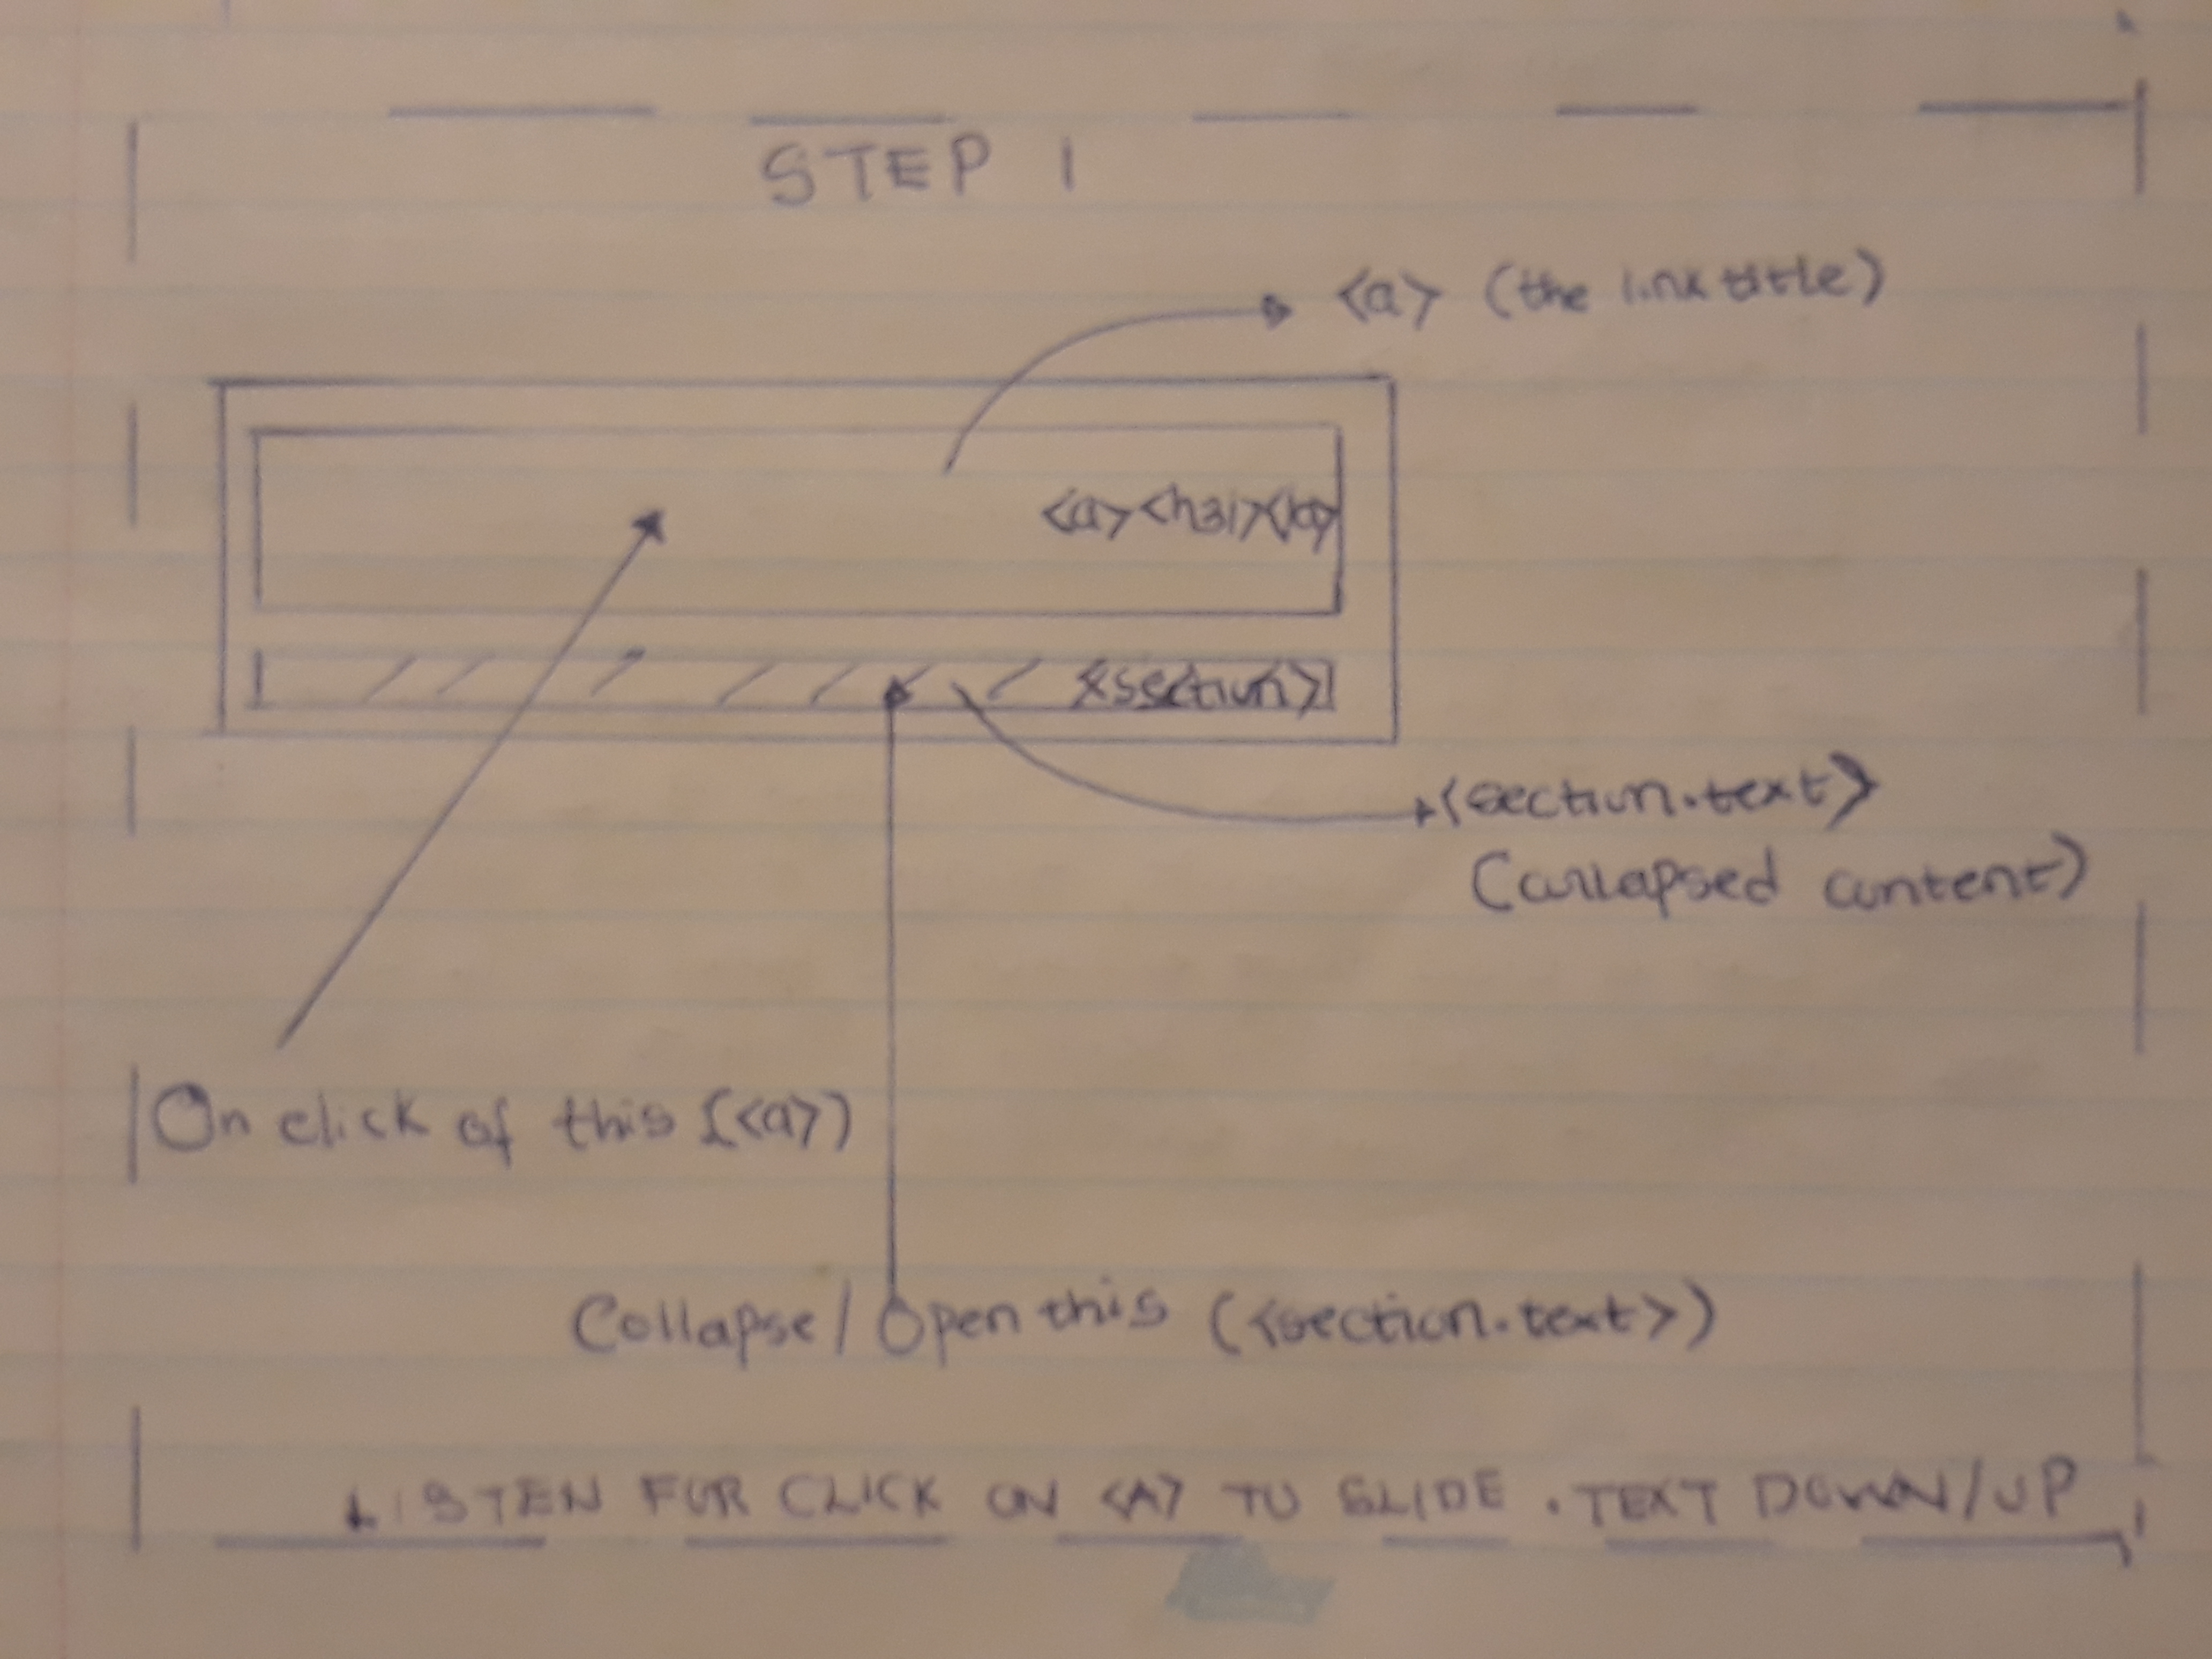 STEP 1
<a> (the link title)
<a><h3>
<section>
<section.text>
(collapsed content)
On click of this (<a>)
Collapse/Open this (<section.text>)
LISTEN FOR CLICK ON <A> TO SLIDE .TEXT DOWN/UP